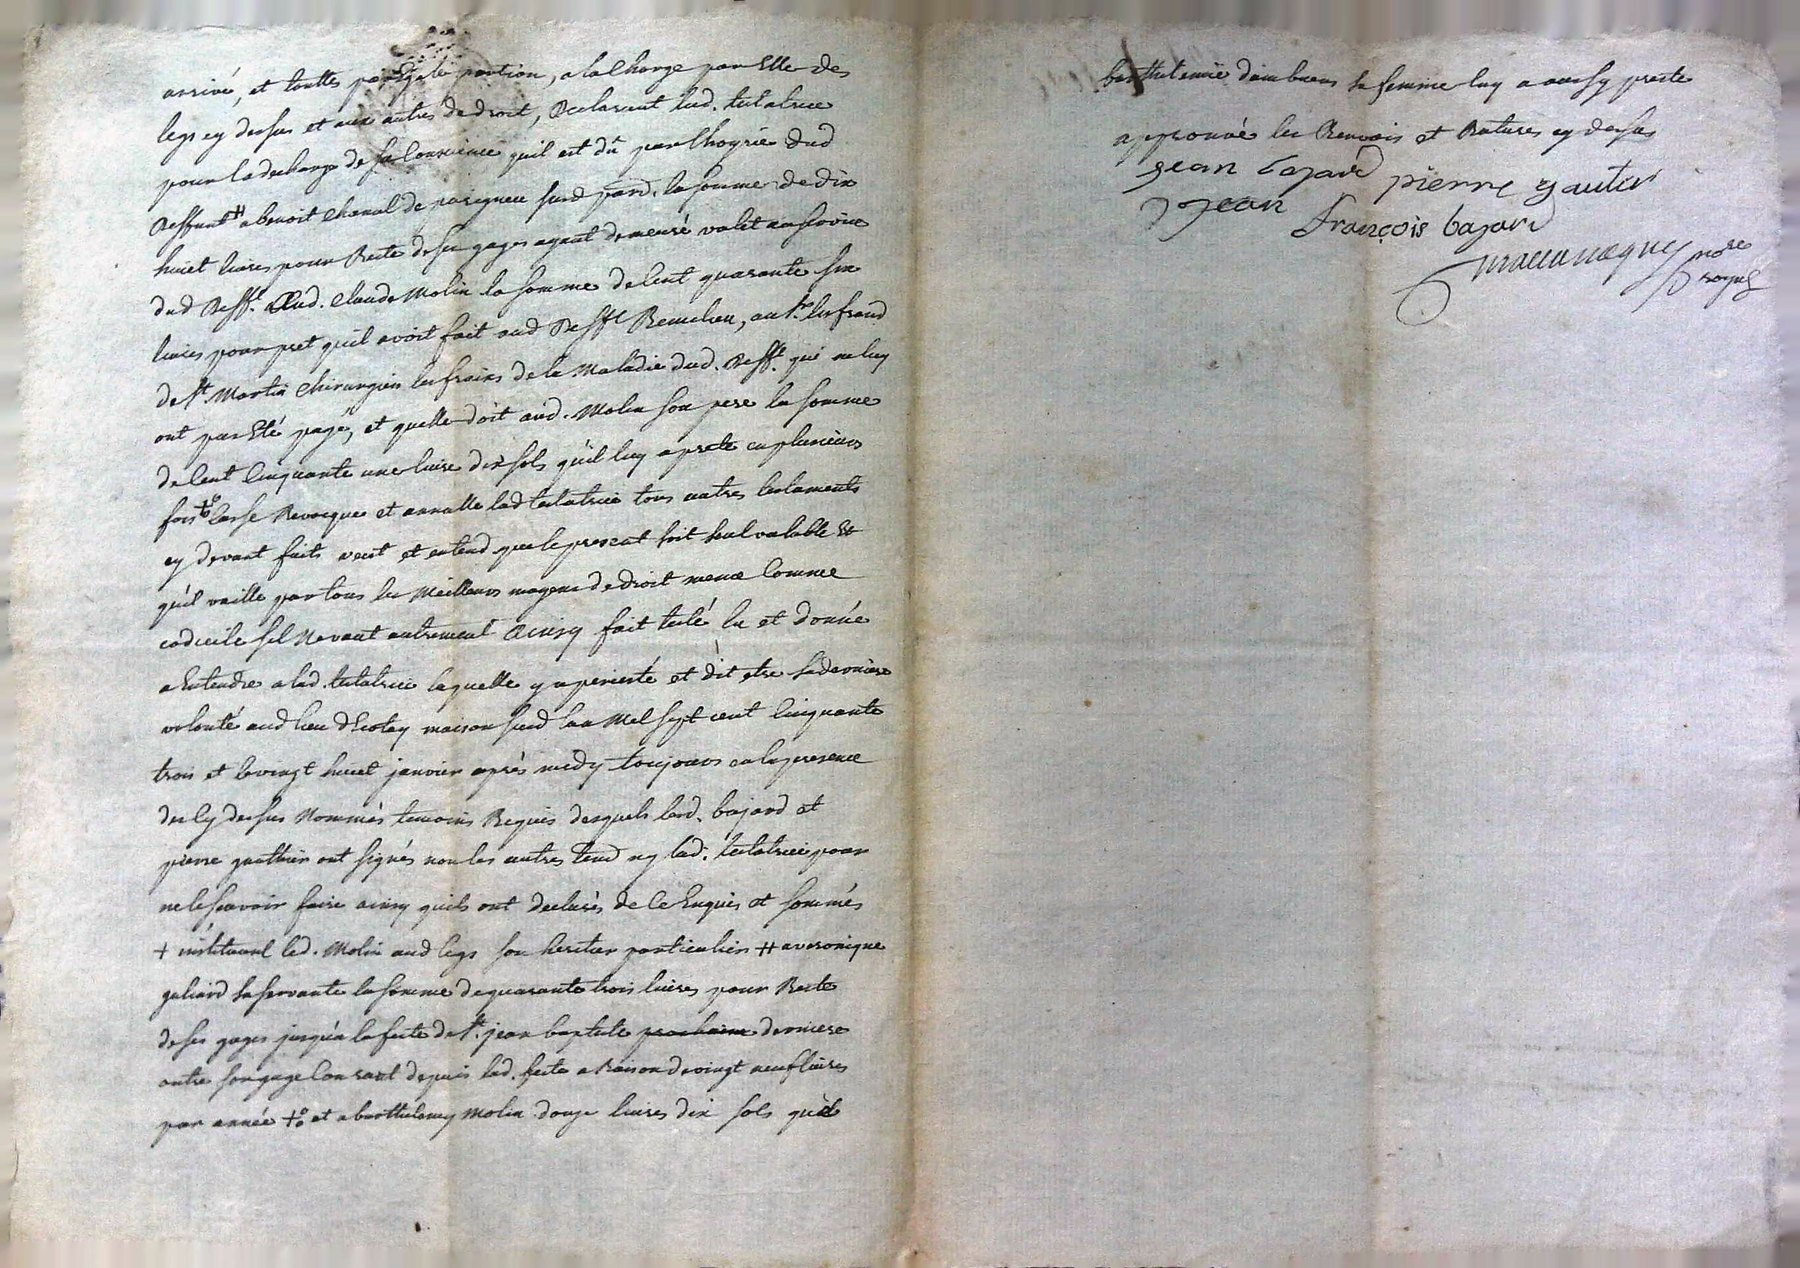 arrivé, et touttes par Egale portion, a la Charge par Elle des
legs cy dessus et aux autres de droit, Declarant lad. testatrice
pour la decharge de sa Conscience quil est dû par lhoyrie dud
deffunt # a benoit chanal de parigneu susd. la somme de dix
huict livres pour Reste de ses gages ayant demeuré valet au service
dud Defft. Aud. Claude Molin la somme de Cent quarante six
livres pour pret quil avoit fait aud Defft , au Sr.
de St. Martin chirurgien les frains de la Maladie dud. defft. qui ne luy
ont pas Eté payé, et quelle doit aud. Molin son pere la somme
de Cent Cinquante une livre dix sols qu'il luy a preté en plusieurs
fois +o Casse Revocque et annulle lad testatrice tous autres testaments
cy devant faits veut et entend que le present soit seul valable Et
qu'il vaille par tous les Meilleurs moyens de droit meme Comme
codicile sil ne vaut autrement Ainsy fait testé lu et donné
a Entendre a lad. testatrice laquelle y a persisté et dit etre sa derniere
volonté aud lieu dEcotay maison susd Lan Mil sept cent Cinquante
trois et le vingt huict janvier après midy toujours en la presence
des Cy dessus Nommés temoins Requis desquels lesd. bajard et
pierre gauthier ont signés non les autres tesd ny lad. testatrice pour
ne le scavoir faire ainsy quils ont declarés de ce Enquis et sommés
+ instituant led. Molin aud legs son heritier particulier # a veronique
galiard sa servante la somme de quarante trois livres pour Reste
de ses gages jusqu'a la feste de St. jean baptiste prochaine derniere
outre son gage Courant depuis lad. feste a Raison de vingt neuf livres
par année +o et a barthelemy Molin douze livres dix sols qu'il
barthelemie dambuens sa femme luy a aussy presté
approuvé les Renvois et Ratures cy dessus
jean bajard pierre gautier
jean françois bajard
nore
royal